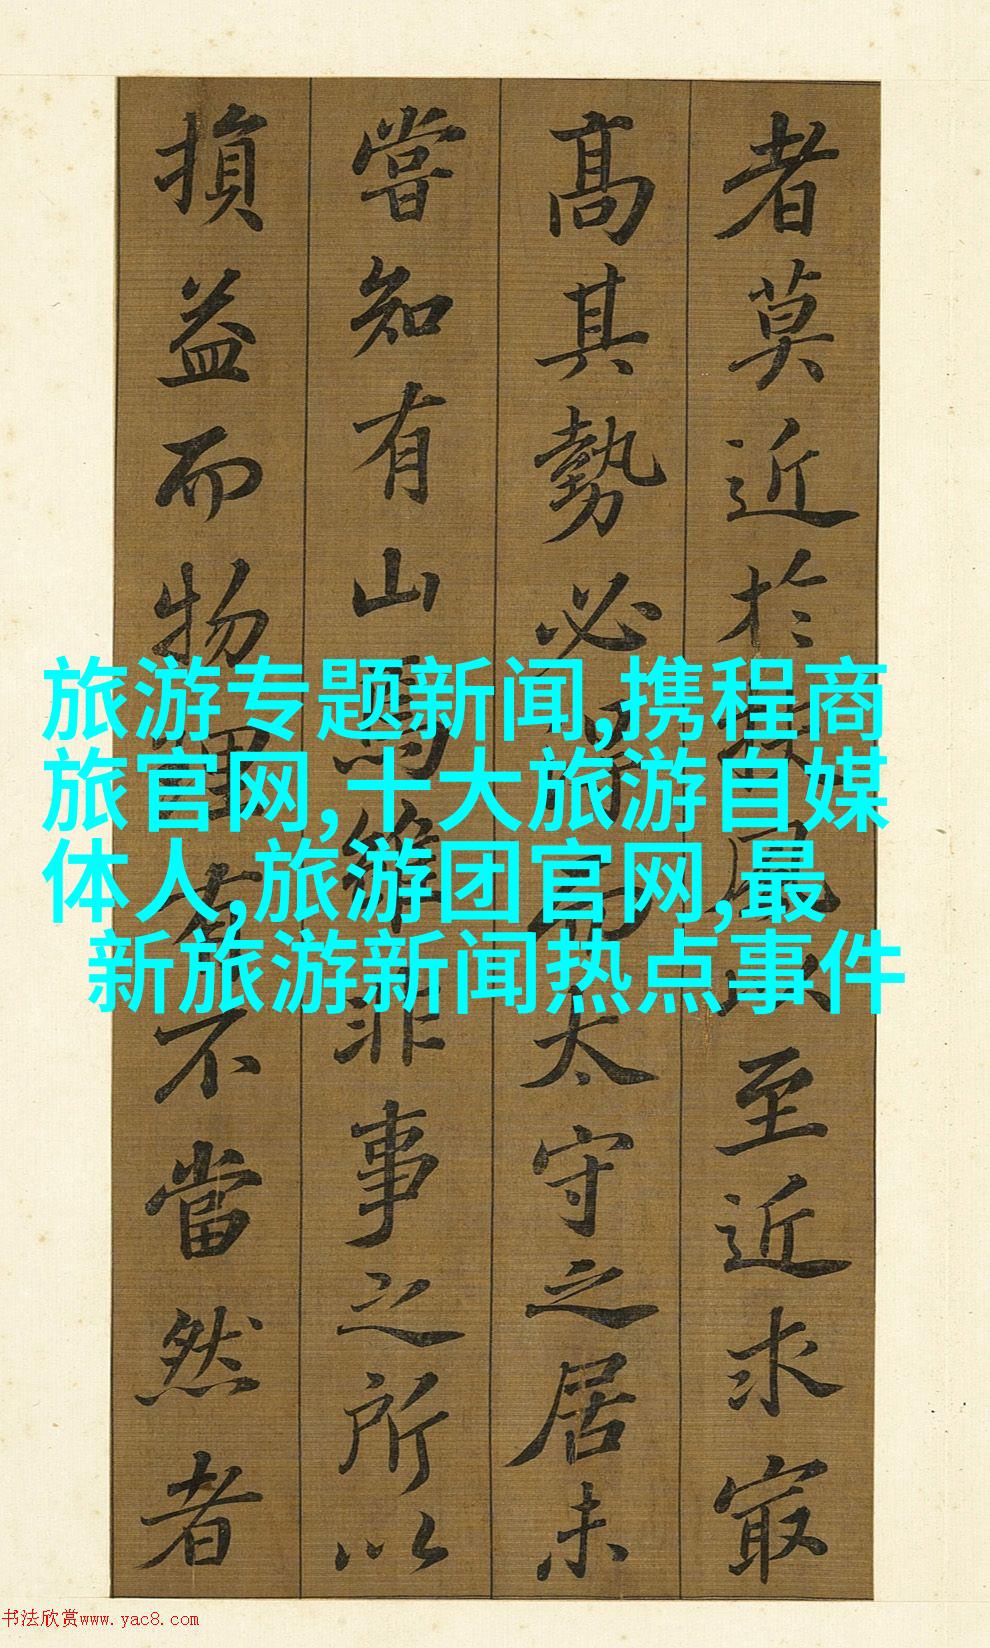 者莫近於扶風以至近求最
高其勢必得而太守之居未
嘗知有山焉雖非事之所以
損益而物理有不當然者
旅游专题新闻,携程商
旅官网,十大旅游自媒
体人,旅游团官网,最
新旅游新闻热点事件
书法欣赏www.yac8.com